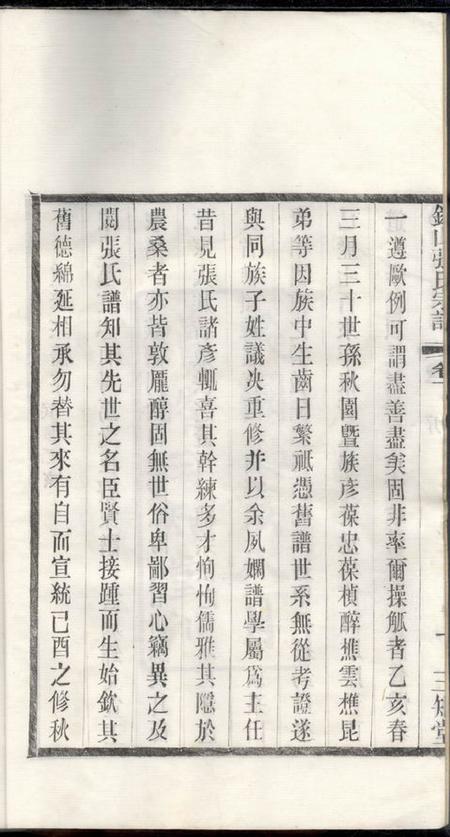 一遵歐例可謂盡善盡矣固非率爾操觚者乙亥春
三月三十世孫秋園曁族彥葆忠葆楨醉樵雲樵昆
弟等因族中生齒日繁祗憑舊譜世系無從考證遂
與同族子姓議决重修并以余夙嫻譜學屬爲主任
昔見張氏諸彥輒喜其幹練多才恂恂儒雅其隱於
農桑者亦皆敦龐醇固無世俗卑鄙習心竊異之及
閱張氏譜知其先世之名臣賢士接踵而生始欽其
舊德綿延相承勿替其來有自而宣統己酉之修秋
山張氏宗譜
卷一